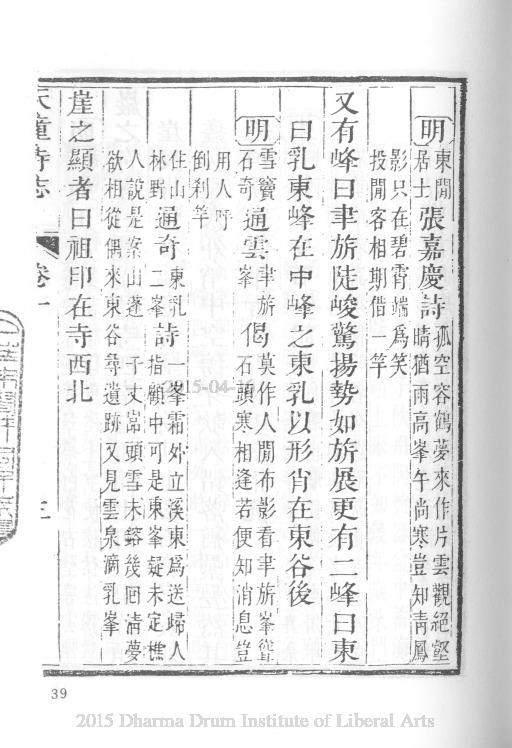 明 東閒居士 張嘉慶詩 孤空容鶴夢來作片雲觀絕壑
晴猶雨高峯午尚寒豈知靑鳳
影只在碧霄端爲笑
投閒客相期借一竿
又有峰曰聿旂陡峻驚揚勢如旂展更有二峰曰東
曰乳東峰在中峰之東乳以形肖在東谷後
明 雪竇石奇 通雲 聿旂峯 偈 莫作人閒布影看聿旂峯聳
石頭寒相逢若便知消息豈
用人呼
倒利竿
住山林野 通奇 東乳二峯 詩 一峯霜外立溪東爲送歸人
指顧中可是東峯凝未定樵
人說是案山蓬 千丈嵓頭雪未鎔幾囘淸夢
欲相從偶來東谷尋遺跡又見雲泉滴乳峯
崖之顯者曰祖印在寺西北
天童寺志 卷一 三
39
2015-04-16
2015 Dharma Drum Institute of Liberal Arts